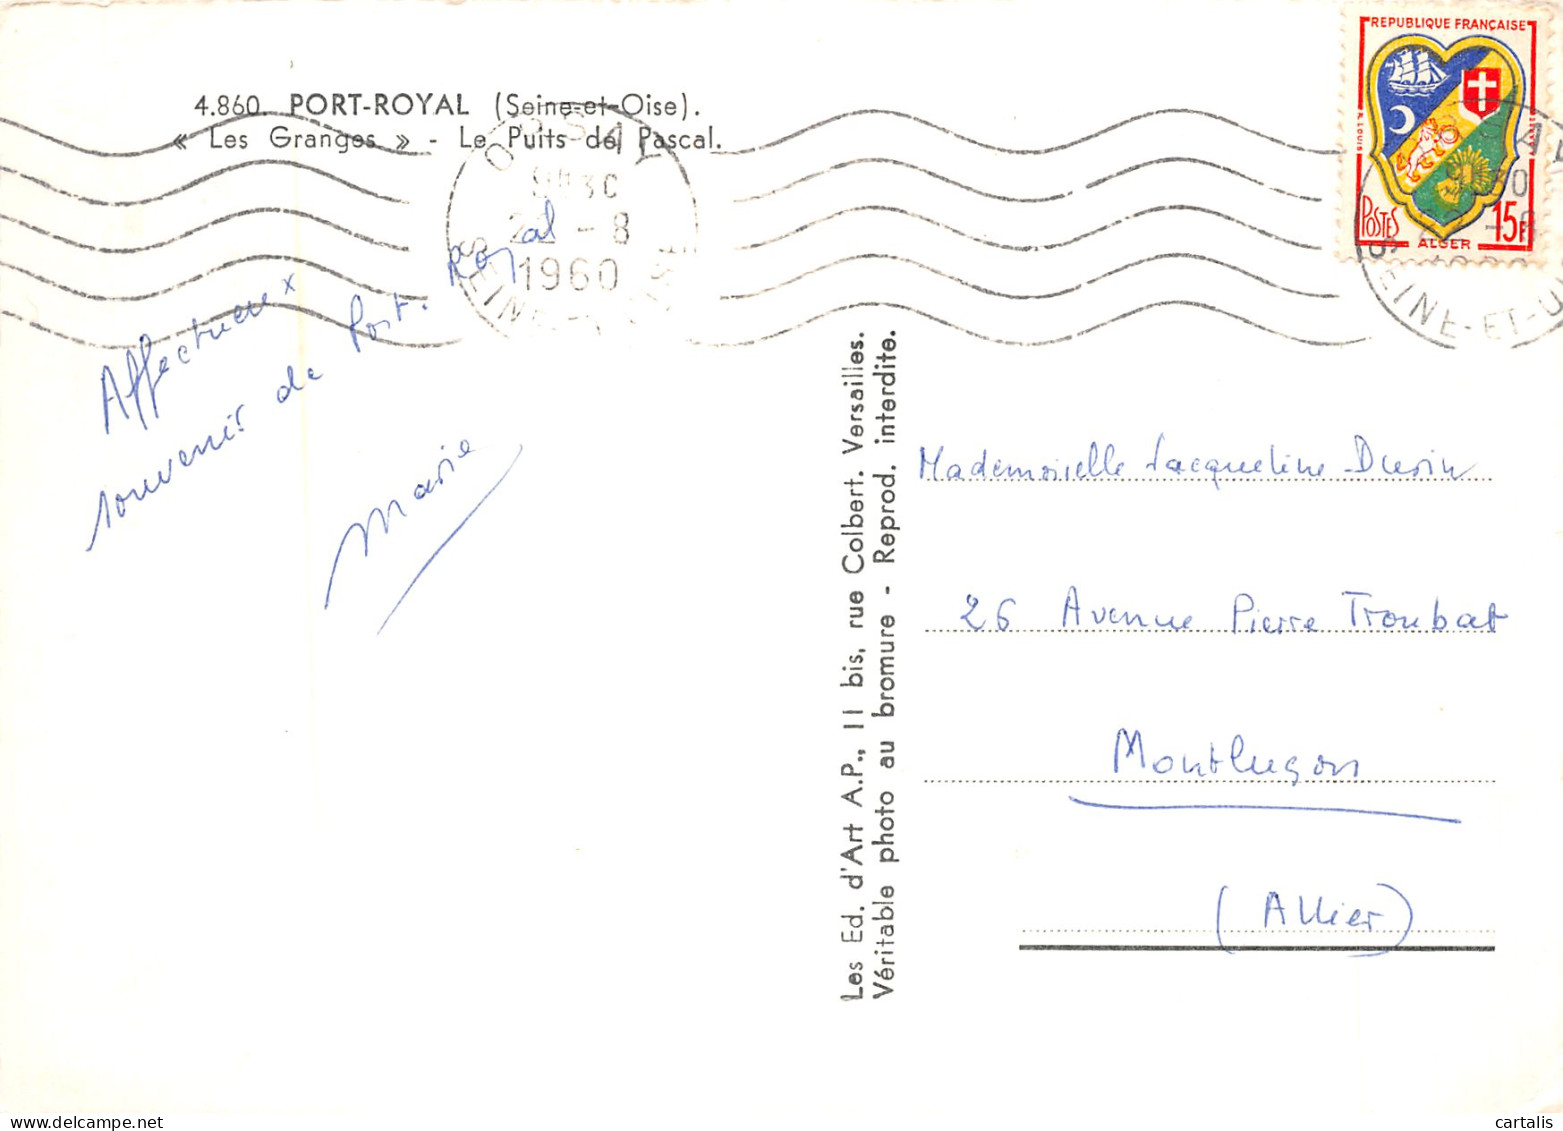 4.860. PORT-ROYAL (Seine-et-Oise).
« Les Granges » - Le Puits de Pascal.
ORSAY
9H30
-8
1960
SEINE-ET-OISE
REPUBLIQUE FRANÇAISE
POSTES
ALGER
15F
SEINE-ET-O
Affectueux
souvenir de Port-Royal
Marie
Les Ed. d'Art A.P., 11 bis, rue Colbert. Versailles.
Véritable photo au bromure - Reprod. interdite.
Mademoiselle Jacqueline
26 Avenue Pierre Troubat
Montluçon
(Allier)
cartalis